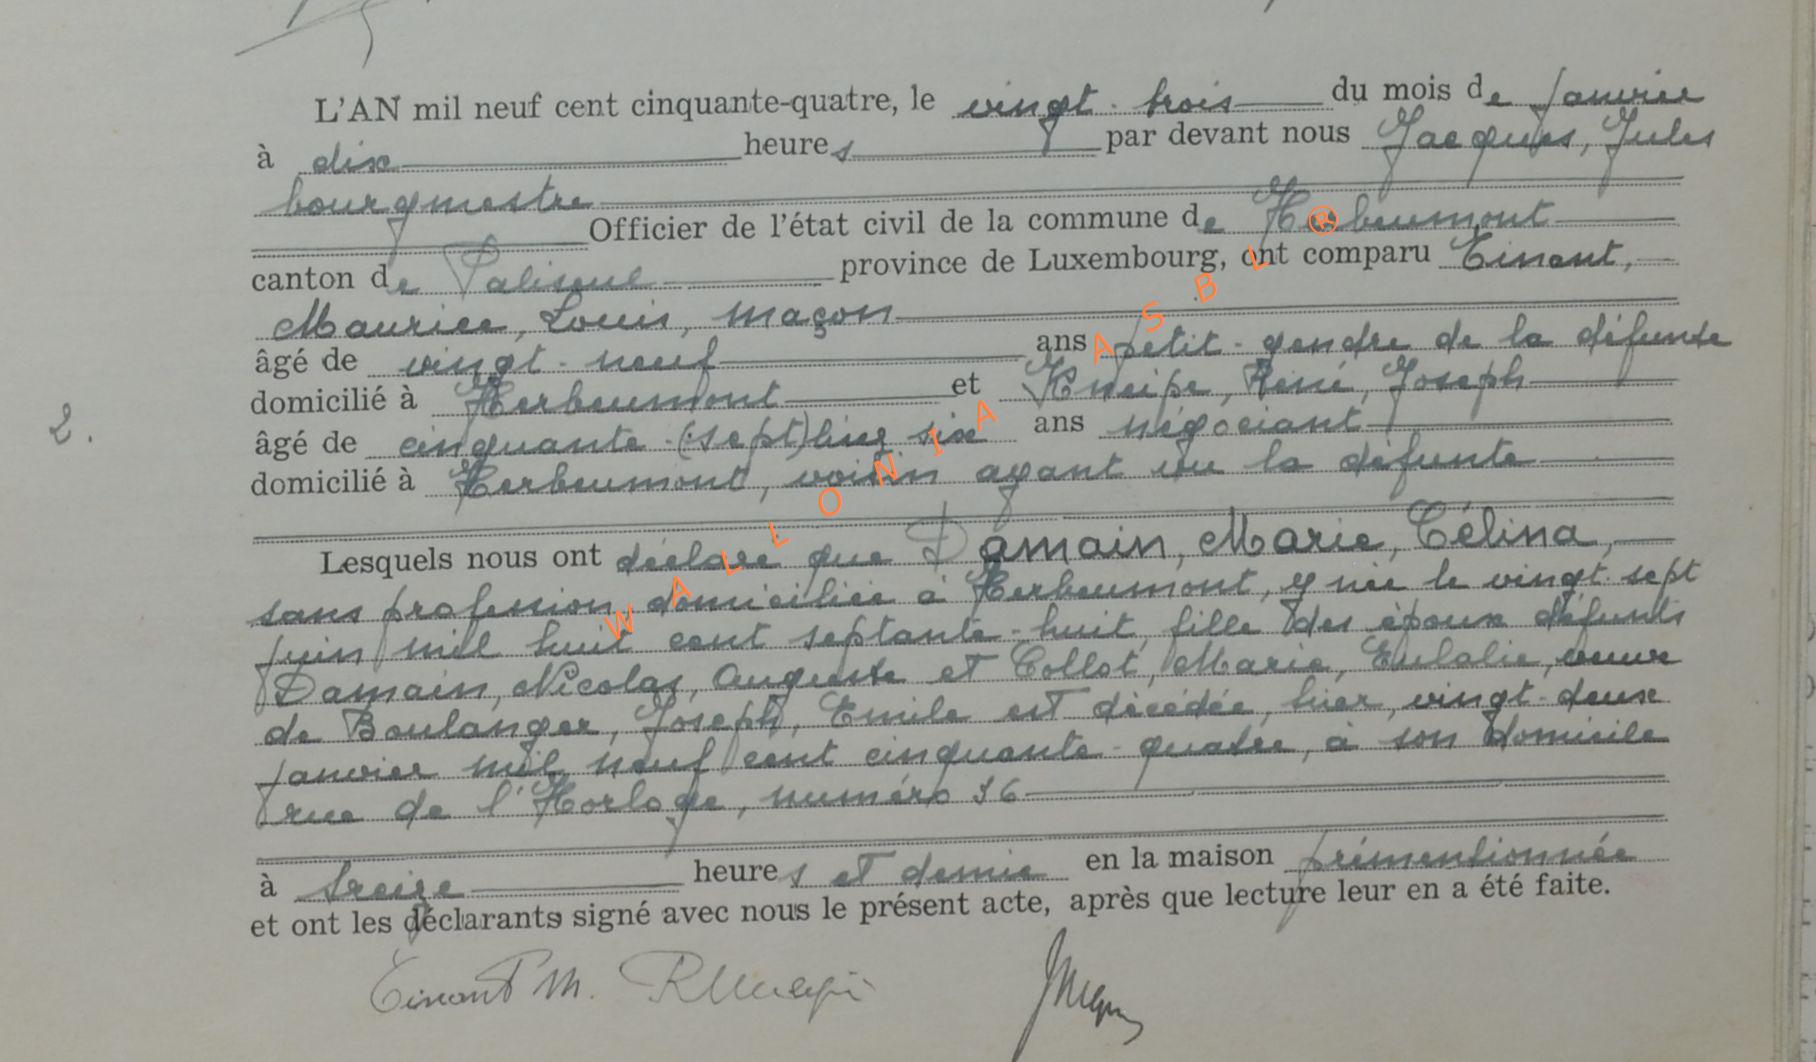 L'AN mil neuf cent cinquante-quatre, le vingt-trois du mois de Janvier
à dix heures par devant nous Jacques, Jules
bourgmestre
Officier de l'état civil de la commune de Herbeumont
canton de Paliseul province de Luxembourg, ont comparu Tinant,
Maurice, Louis, maçon
âgé de vingt-neuf ans petit-gendre de la défunte
domicilié à Herbeumont et Kneipe, René, Joseph
2.
âgé de cinquante-(sept)lisez six ans négociant
domicilié à Herbeumont, voisin ayant vu la défunte
Lesquels nous ont déclaré que Damain, Marie, Célina,
sans profession, domiciliée à Herbeumont, y née le vingt-sept
juin mil huit cent septante-huit, fille des époux défunts
Damain, Nicolas, Auguste et Collot, Marie, Eulalie, veuve
de Boulanger, Joseph, Emile est décédée, hier, vingt-deux
janvier mil neuf cent cinquante-quatre, à son domicile
rue de l'Horloge, numéro 36
à treize heures et demie en la maison prémentionnée
et ont les déclarants signé avec nous le présent acte, après que lecture leur en a été faite.
Tinant M.
WALLONIA ASBL ®